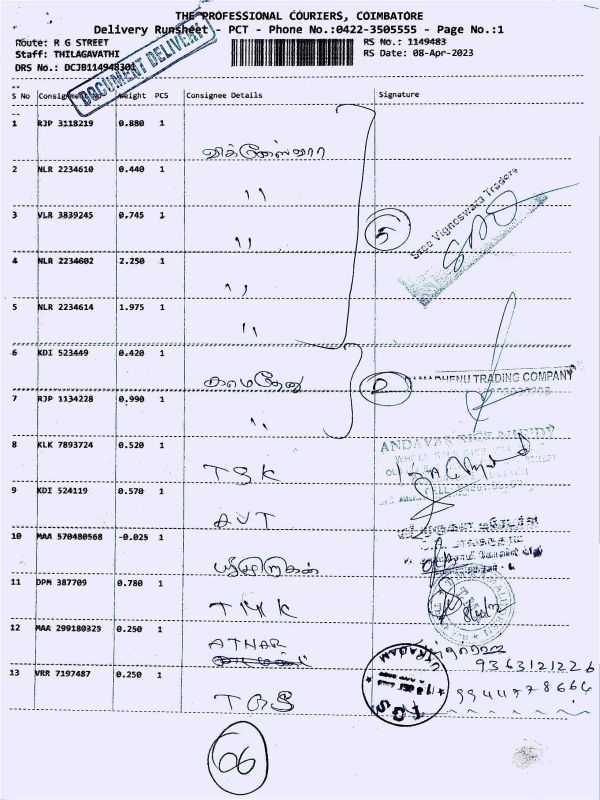 THE PROFESSIONAL COURIERS, COIMBATORE
Delivery Runsheet - PCT - Phone No.:0422-3505555 - Page No.:1
Route: R G STREET
RS No.: 1149483
Staff: THILAGAVATHI
RS Date: 08-Apr-2023
DRS No.: DCJB114948301
DOCUMENT DELIVERY
S No Consignment No Weight PCS Consignee Details Signature
1 RJP 3118219 0.880 1
விக்னேஸ்வரா
2 NLR 2234610 0.440 1
"
3 VLR 3839245 0.745 1
"
5
Sree Vigneswara Traders
4 NLR 2234602 2.250 1
"
5 NLR 2234614 1.975 1
"
6 KDI 523449 0.420 1
காமதேனு
2
DHENU TRADING COMPANY
7 RJP 1134228 0.990 1
"
8 KLK 7893724 0.520 1
TSK
9 KDI 524119 0.570 1
AVT
10 MAA 570480568 -0.025 1
11 DPM 387709 0.780 1
TMK
12 MAA 299180325 0.250 1
ATHAR
9363121226
13 VRR 7197487 0.250 1
TGS
TGS
06